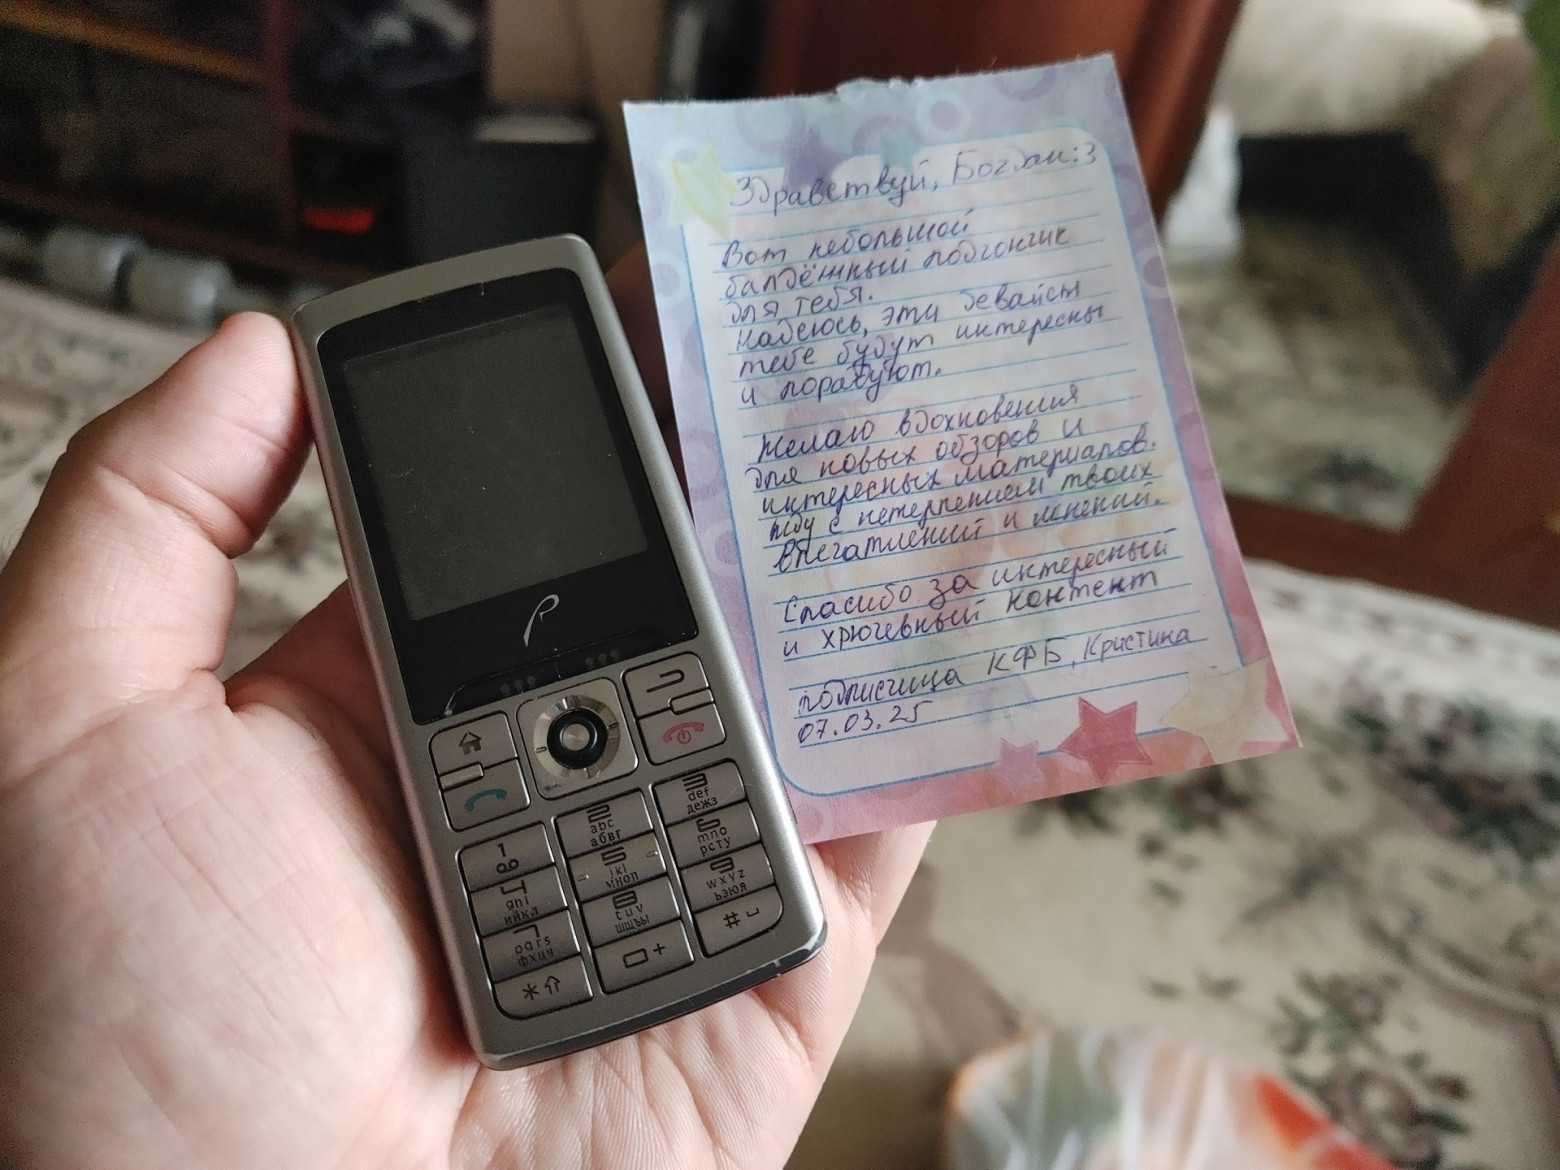 Здравствуй, Богдан:3
Вот небольшой
балдёжный подгончик
для тебя.
Надеюсь, эти девайсы
тебе будут интересны
и порадуют.
Желаю вдохновения
для новых обзоров и
интересных материалов.
Жду с нетерпением твоих
впечатлений и мнений.
Спасибо за интересный
и хрючевный контент
подписчица КФБ, Кристина
07.03.25
P
1
2 abc абвг
3 def дежз
4 ghi ийкл
5 jkl мноп
6 mno рсту
7 pqrs фхцч
8 tuv шщъы
9 wxyz ьэюя
*
+
#